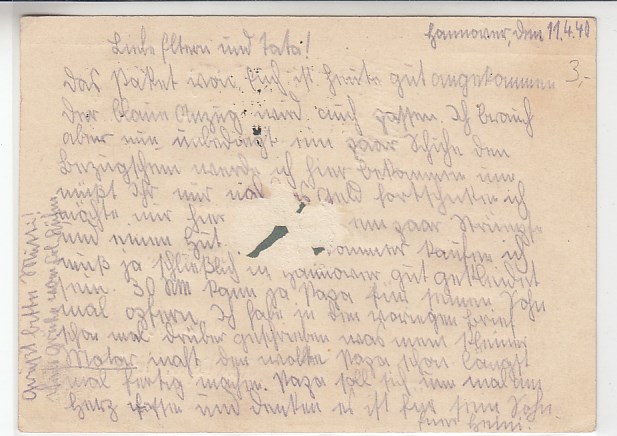 Hannover, den 11.4.40
Liebe Eltern und Tata!
3,-
Das Paket von Euch ist heute gut angekommen
Der blaue Anzug wird auch passen. Ich brauch
aber nun unbedingt ein paar Schuhe den
Bezugschein werde ich hier bekommen nur
müßt Ihr mir Geld fortschicken ich
möchte mir hier ein paar Strümpfe
und einen Hut kaufen ich
muß ja schließlich in Hannover gut gekleidet
sein. 30 RM kann ja Papa für seinen Sohn
mal opfern. Ich habe in den vorigen Brief
schon mal drüber geschrieben was mein kleiner
Motor macht den wollte Papa schon längst
mal fertig machen. Papa soll sich nun mal ein
Herz fassen und denken es ist für sein Sohn.
Euer Heini.
bitte Mütze!